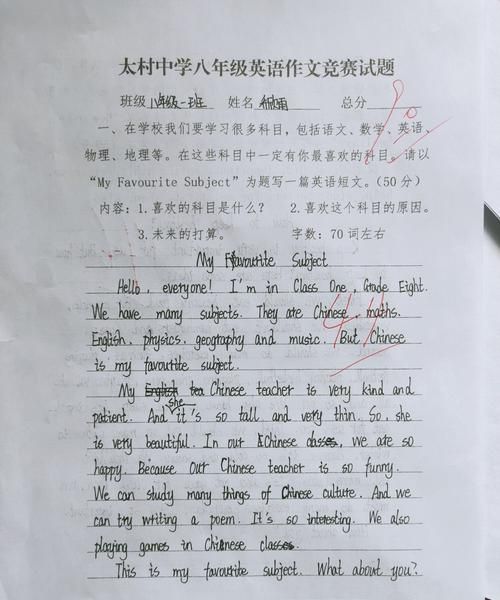 太村中学八年级英语作文竞赛试题
班级 八年级一班 姓名 总分
一、在学校我们要学习很多科目，包括语文、数学、英语、
物理、地理等。在这些科目中一定有你最喜欢的科目。请以
“My Favourite Subject”为题写一篇英语短文。(50分)
内容：1.喜欢的科目是什么？ 2.喜欢这个科目的原因。
3.未来的打算。 字数：70词左右
My Favourite Subject
Hello, everyone! I'm in Class One, Grade Eight.
We have many subjects. They are Chinese, maths.
English, physics, geography and music. But Chinese
is my favourite subject.
My English tea Chinese teacher is very kind and
she
patient. And it's so tall and very thin. So, she
is very beautiful. In our Chinese class, we are so
happy. Because our Chinese teacher is so funny.
We can study many things of Chinese culture. And we
can try writing a poem. It's so interesting. We also
playing games in Chinese class.
This is my favourite subject. What about you?